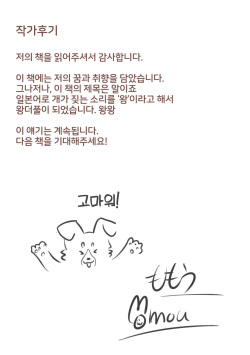 작가후기
저의 책을 읽어주셔서 감사합니다.
이 책에는 저의 꿈과 취향을 담았습니다.
그나저나, 이 책의 제목은 말이죠
일본어로 개가 짖는 소리를 '왕'이라고 해서
왕더풀이 되었습니다. 왕왕
이 얘기는 계속됩니다.
다음 책을 기대해주세요!
고마워!
ももう
Momou